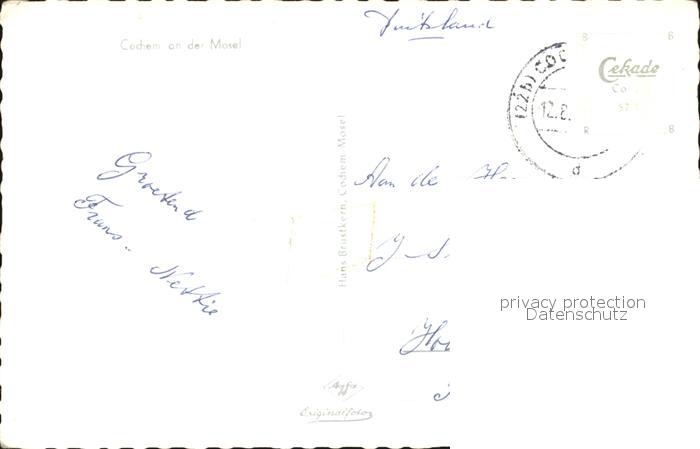 Cochem an der Mosel
Duitsland
(22b) COC
12.8.
d
B B
Cekade
Co
57
R B
Groetend
Frans
Nettie
Hans Brustkern, Cochem-Mosel
Aan de
privacy protection
Datenschutz
Agfa
Originalfoto